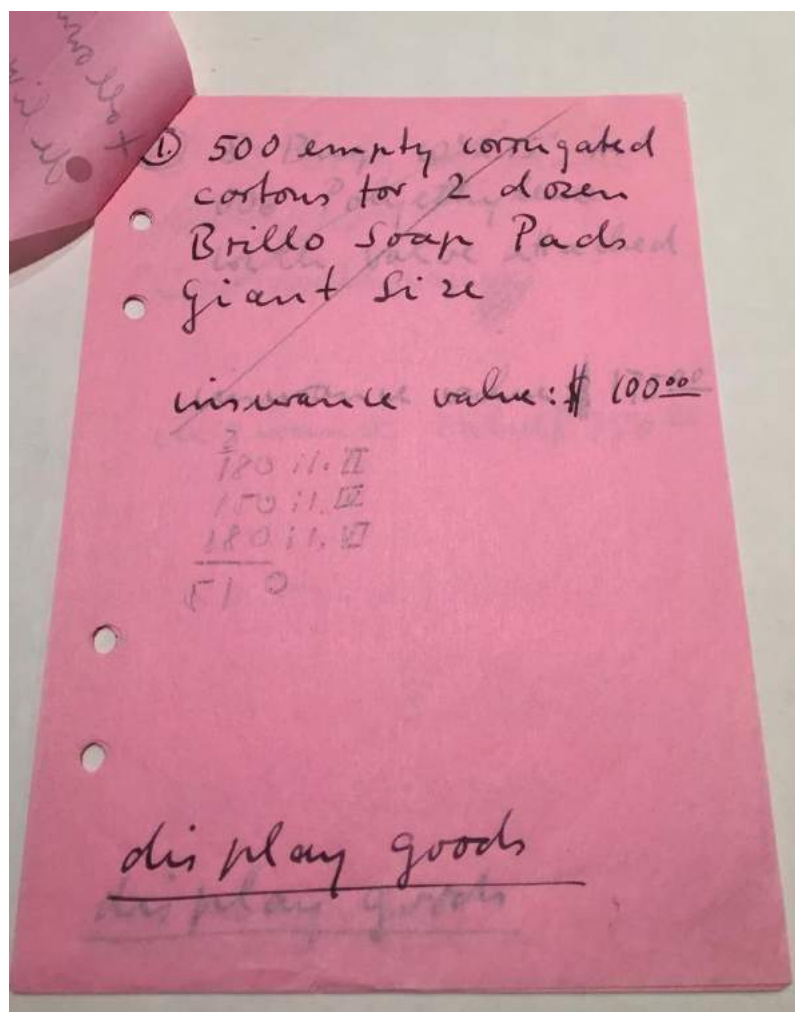 1. 500 empty corrugated
cartons for 2 dozen
Brillo Soap Pads
Giant Size
insurance value: $ 100.00
180 il. II
150 il. IV
180 il. VI
510
display goods
display goods